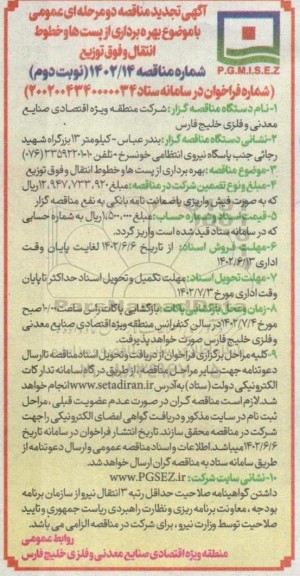 آگهی تجدید مناقصه دو مرحله ای عمومی
با موضوع بهره برداری از پست ها و خطوط
انتقال و فوق توزیع
شماره مناقصه ۱۴۰۲/۱۴ (نوبت دوم)
P.G.M.I.S.E.Z
(شماره فراخوان در سامانه ستاد ۲۰۰۲۰۰۴۳۴۰۰۰۰۰۳۴)
۱-نام دستگاه مناقصه گزار: شرکت منطقه ویژه اقتصادی صنایع
معدنی و فلزی خلیج فارس
۲-نشانی دستگاه مناقصه گزار: بندرعباس-کیلومتر ۱۳ بزرگراه شهید
رجائی جنب پاسگاه نیروی انتظامی خونسرخ-تلفن ۱۰-۳۳۵۹۲۲۰۱(۰۷۶)
۳-موضوع مناقصه: بهره برداری از پست ها و خطوط انتقال و فوق توزیع
۴-مبلغ و نوع تضمین شرکت در مناقصه: مبلغ ۱۲,۹۴۷,۷۳۳,۹۲۰ ریال
که به صورت فیش واریزی یا ضمانت نامه بانکی به نفع مناقصه گزار
۵-قیمت اسناد و شماره حساب: مبلغ ۱,۵۰۰,۰۰۰ ریال به شماره حسابی
که در سامانه ستاد قید شده است واریز گردد.
۶-مهلت فروش اسناد: از تاریخ ۱۴۰۲/۶/۶ لغایت پایان وقت
اداری ۱۴۰۲/۶/۱۳
۷-مهلت تحویل اسناد: مهلت تکمیل و تحویل اسناد حداکثر تا پایان
وقت اداری مورخ ۱۴۰۲/۷/۳
۸-زمان و محل بازگشایی پاکات: بازگشایی پاکات راس ساعت ۱۰:۰۰ صبح
مورخ ۱۴۰۲/۷/۴ در سالن کنفرانس منطقه ویژه اقتصادی صنایع معدنی
و فلزی خلیج فارس صورت خواهد پذیرفت.
۹-کلیه مراحل برگزاری فراخوان از دریافت و تحویل اسناد مناقصه تا ارسال
دعوتنامه جهت سایر مراحل مناقصه، از طریق درگاه سامانه تدارکات
الکترونیکی دولت (ستاد) به آدرس www.setadiran.ir انجام خواهد
شد. لازم است مناقصه گران در صورت عدم عضویت قبلی، مراحل
ثبت نام در سایت مذکور و دریافت گواهی امضای الکترونیکی را جهت
شرکت در مناقصه محقق سازند. تاریخ انتشار فراخوان در سامانه تاریخ
۱۴۰۲/۶/۶ میباشد. اطلاعات و اسناد مناقصه عمومی و ارسال دعوتنامه از
طریق سامانه ستاد به مناقصه گران ارسال خواهد شد.
۱۰-نشانی سایت شرکت: www.PGSEZ.ir
داشتن گواهینامه صلاحیت حداقل رتبه ۳ انتقال نیرو از سازمان برنامه
و بودجه، معاونت برنامه ریزی و نظارت راهبردی ریاست جمهوری و تایید
صلاحیت توسط وزارت نیرو، برای شرکت در مناقصه الزامی می باشد.
روابط عمومی
منطقه ویژه اقتصادی صنایع معدنی و فلزی خلیج فارس